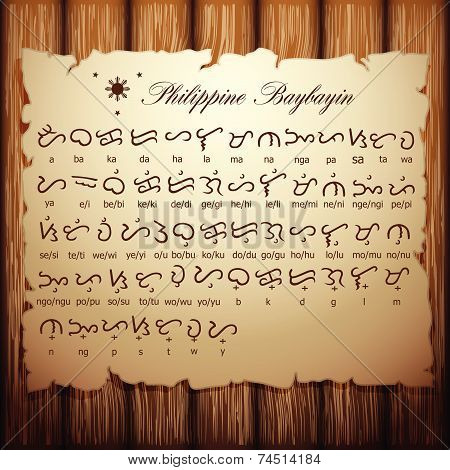 Philippine Baybayin
ᜀ ᜊ ᜃ ᜇ ᜑ ᜎ ᜋ ᜈ ᜅ ᜉ ᜐ ᜆ ᜏ
a ba ka da ha la ma na nga pa sa ta wa
ᜌ ᜁ ᜊᜒ ᜃᜒ ᜇᜒ ᜄᜒ ᜑᜒ ᜎᜒ ᜋᜒ ᜈᜒ ᜅᜒ ᜉᜒ
ya e/i be/bi ke/ki de/di ge/gi he/hi le/li me/mi ne/ni nge/ngi pe/pi
ᜐᜒ ᜆᜒ ᜏᜒ ᜌᜒ ᜂ ᜊᜓ ᜃᜓ ᜇᜓ ᜄᜓ ᜑᜓ ᜎᜓ ᜋᜓ ᜈᜓ
se/si te/ti we/wi ye/yi o/u bo/bu ko/ku do/du go/gu ho/hu lo/lu mo/mu no/nu
ᜅᜓ ᜉᜓ ᜐᜓ ᜆᜓ ᜏᜓ ᜌᜓ ᜊ᜔ ᜃ᜔ ᜇ᜔ ᜄ᜔ ᜎ᜔ ᜋ᜔
ngo/ngu po/pu so/su to/tu wo/wu yo/yu b k d g l m
ᜈ᜔ ᜅ᜔ ᜉ᜔ ᜐ᜔ ᜆ᜔ ᜏ᜔ ᜌ᜔
n ng p s t w y